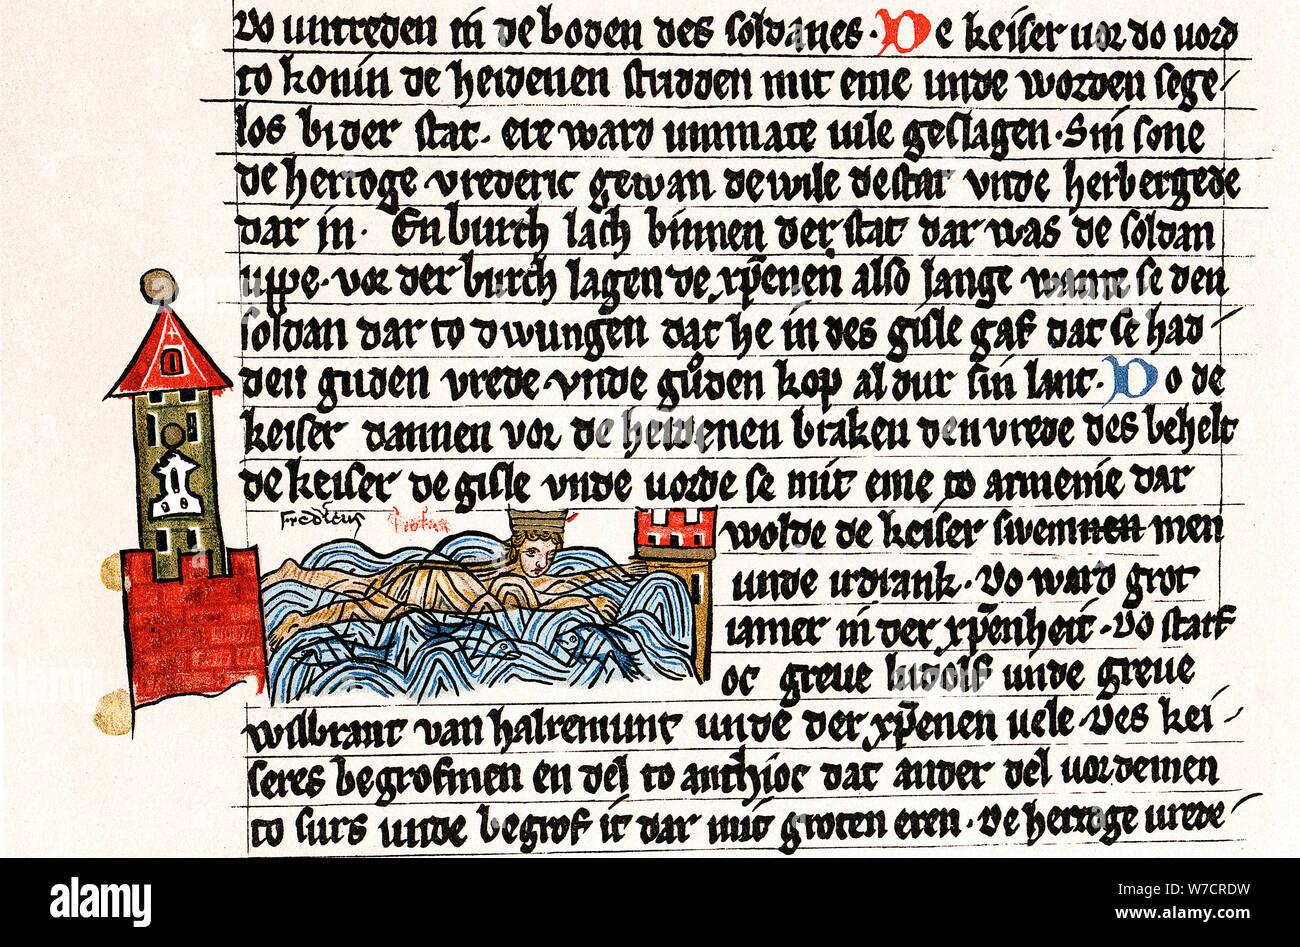 vo untreden in de boden des soldanes. De keiser vor do vord
to konin de heidenen studden mit eme unde worden sege
los bi der stat. ere ward unmate vile geslagen. Sin sone
de hertoge vrederic gewan de wile de stat unde herbergede
dar in. En burch lach binnen der stat dar was de soldan
uppe. vor der burch lagen de xpenen also lange want se den
soldan dar to dwungen dat he in des gisle gaf dat se had
den guden vrede unde guden kop al dur sin lant. Do de
keiser dannen vor de heidenen braken den vrede des behelt
de keiser de gisle unde vorde se mit eme to armenie dar
Fredicus
wolde de keiser swemmen
unde irdrank. Do ward grot
iamer in der xpenheit. Do starf
oc greve ludolf unde greve
wilbrant van halremunt unde der xpenen vele. Des kei
seres begrofmen en del to anthioc dat ander del vordemen
to surs unde begrof it dar mit groten eren. De hertoge vrede
alamy
Image ID: W7CRDW
www.alamy.com